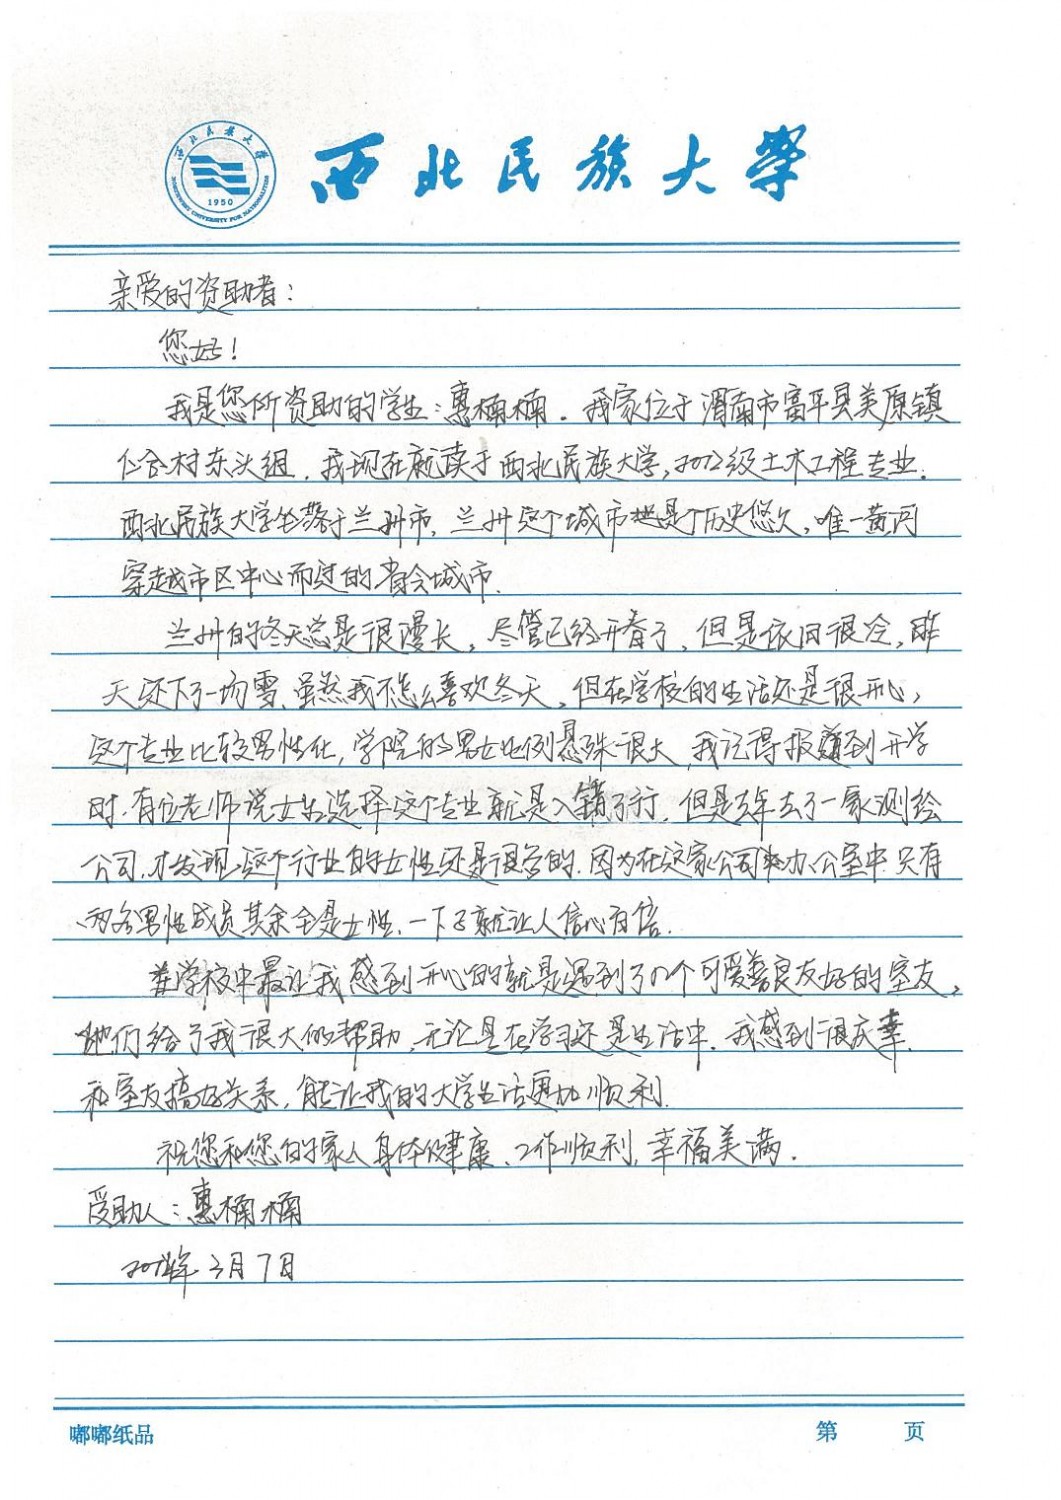 西北民族大学
西北民族大学
NORTHWEST UNIVERSITY FOR NATIONALITIES
1950
亲爱的资助者：
您好！
我是您所资助的学生：惠楠楠．我家位于渭南市富平县美原镇
仁合村东头组．我现在就读于西北民族大学，2012级土木工程专业．
西北民族大学坐落于兰州市，兰州这个城市也是个历史悠久，唯一黄河
穿越市区中心而过的省会城市．
兰州的冬天总是很漫长，尽管已经开春了，但是依旧很冷，昨
天还下了一场雪．虽然我不怎么喜欢冬天，但在学校的生活还是很开心，
这个专业比较男性化，学院的男女比例悬殊很大，我记得报到开学
时．有位老师说女生选择这个专业就是入错了行，但是去年去了一家测绘
公司，才发现这个行业的女性还是很多的．因为在这家公司办公室中．只有
两名男性成员其余全是女性，一下子就让人信心百倍．
学校中最让我感到开心的就是遇到了几个可爱善良友好的室友，
她们给了我很大的帮助，无论是在学习还是生活中．我感到很庆幸，
和室友搞好关系，能让我的大学生活更加顺利．
祝您和您的家人身体健康、工作顺利，幸福美满．
受助人：惠楠楠
年3月7日
嘟嘟纸品
第 页